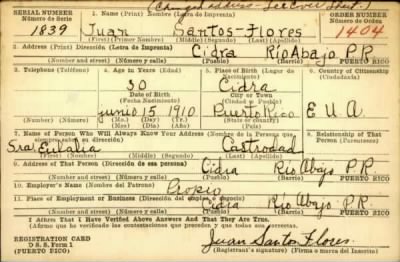 (Changed address - See Cover Sheet.)
SERIAL NUMBER 1. Name (Print) Nombre (Letra de Imprenta) ORDER NUMBER
Número de Serie Número de Orden
1839 Juan Santos-Flores 1404
(First) (Primer Nombre) (Middle) (Segundo) (Last) (Apellido)
2. Address (Print) Dirección (Letra de Imprenta)
Cidra Rio Abajo P.R.
(Number and street) (Número y calle) (Town) (Pueblo) (Barrio) PUERTO RICO
3. Telephone (Teléfono) 4. Age in Years (Edad) 5. Place of Birth (Lugar de Nacimiento) 6. Country of Citizenship (Ciudadanía)
30 Cidra
Date of Birth City or Town
(Fecha Nacimiento) (Ciudad o Pueblo)
junio 15 1910 Puerto Rico E U A
(Mo.) (Day) (Yr.) State or country
(Mes) (Día) (Año) (Estado o país)
7. Name of Person Who Will Always Know Your Address (Nombre de la Persona que siempre sabrá su dirección) 8. Relationship of That Person (Parentesco)
Sra. Eulalia Castrodad
(First) (Nombre) (Middle) (Segundo) (Last) (Apellido)
9. Address of That Person (Dirección de esa persona)
Cidra Rio Abajo P.R.
(Number and street) (Número y calle) (Town) (Pueblo) (Barrio) PUERTO RICO
10. Employer's Name (Nombre del Patrono)
Propio
11. Place of Employment or Business (Dirección del empleo o negocio)
Cidra Rio Abajo P.R.
(Number and street) (Número y calle) (Town) (Pueblo) (Barrio) PUERTO RICO
I Affirm That I Have Verified Above Answers And That They Are True.
(Afirmo que he verificado las contestaciones que preceden y que todas son verdad.)
REGISTRATION CARD
D. S. S. Form 1
(Puerto Rico)
Juan Santos Flores.
(Registrant's signature) (Firma o marca del Inscrito)